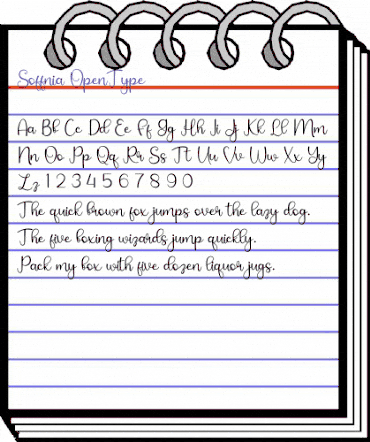 Soffnia OpenType
Aa Bb Cc Dd Ee Ff Gg Hh Ii Jj Kk Ll Mm
Nn Oo Pp Qq Rr Ss Tt Uu Vv Ww Xx Yy
Zz 1 2 3 4 5 6 7 8 9 0
The quick brown fox jumps over the lazy dog.
The five boxing wizards jump quickly.
Pack my box with five dozen liquor jugs.